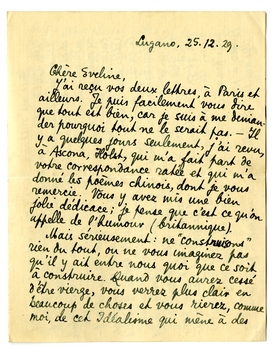 Lugano, 25.12.29.
Chère Eveline,
J'ai reçu vos deux lettres, à Paris et
ailleurs. Je puis facilement vous dire
que tout est bien, car je suis à me deman-
der pourquoi tout ne le serait pas. — Il
y a quelques jours seulement, j'ai revu,
à Ascona, Holst, qui m'a fait part de
votre correspondance ratée et qui m'a
donné les poèmes chinois, dont je vous
remercie. Vous y avez mis une bien
jolie dédicace; je pense que c'est ce qu'on
appelle de l'humour (britannique).
Mais sérieusement: ne "construisons"
rien du tout, on ne vous imaginez pas
qu'il y ait entre nous quoi que ce soit
à construire. Quand vous aurez cessé
d'être vierge, vous verrez plus clair en
beaucoup de choses et vous rierez, comme
moi, de cet Idéalisme qui mène à des